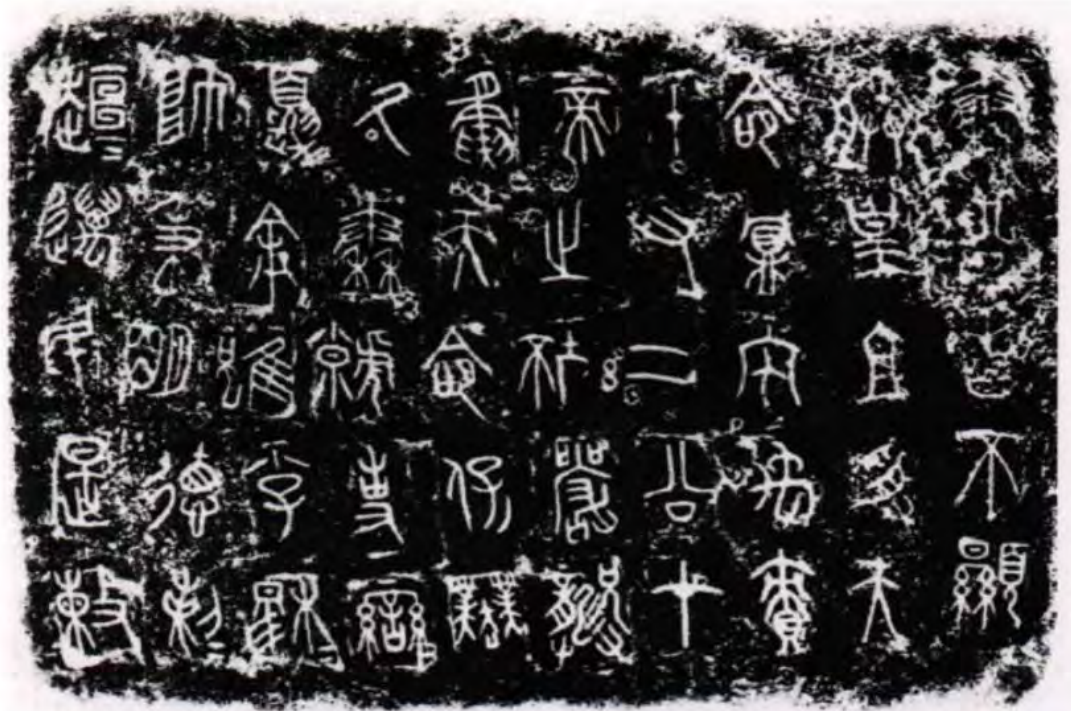 秦公曰不顯
朕皇且受天
命鼏宅禹責
十又二公才
帝之坯嚴龏
夤天命保業
厥秦虩事蠻
夏余雖小子穆=
帥秉明德剌=
趄=邁民是敕